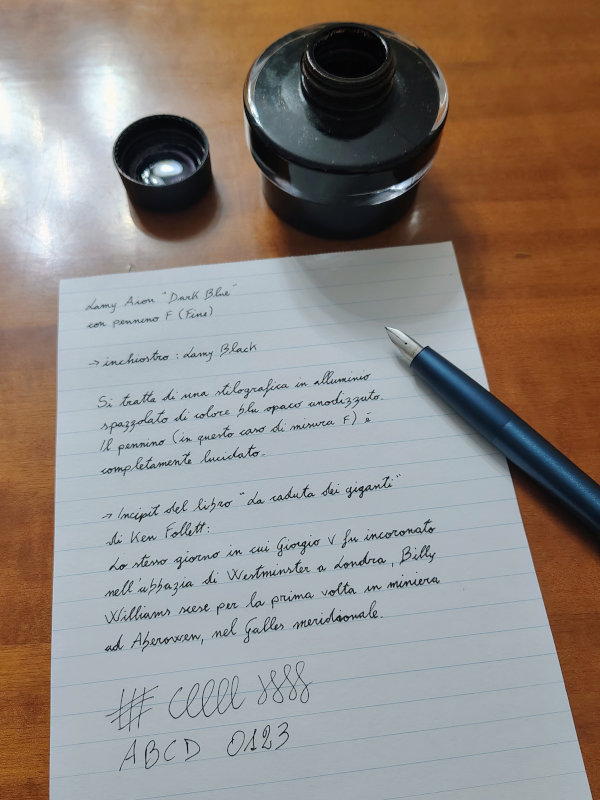 Lamy Aion "Dark Blue"
con pennino F (Fine)
→ inchiostro: Lamy Black
Si tratta di una stilografica in alluminio
spazzolato di colore blu opaco anodizzato.
Il pennino (in questo caso di misura F) è
completamente lucidato.
→ Incipit del libro "La caduta dei giganti"
di Ken Follett:
Lo stesso giorno in cui Giorgio V fu incoronato
nell'abbazia di Westminster a Londra, Billy
Williams scese per la prima volta in miniera
ad Aberowen, nel Galles meridionale.
ABCD 0123